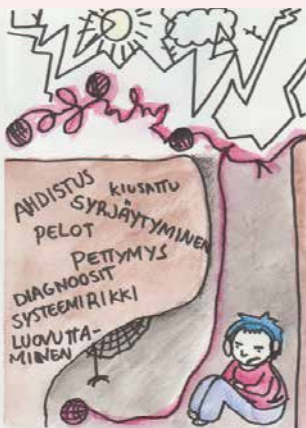 AHDISTUS
KIUSATTU
SYRJÄYTYMINEN
PELOT
PETTYMYS
DIAGNOOSIT
SYSTEEMI RIKKI
LUOVUTTA-
MINEN